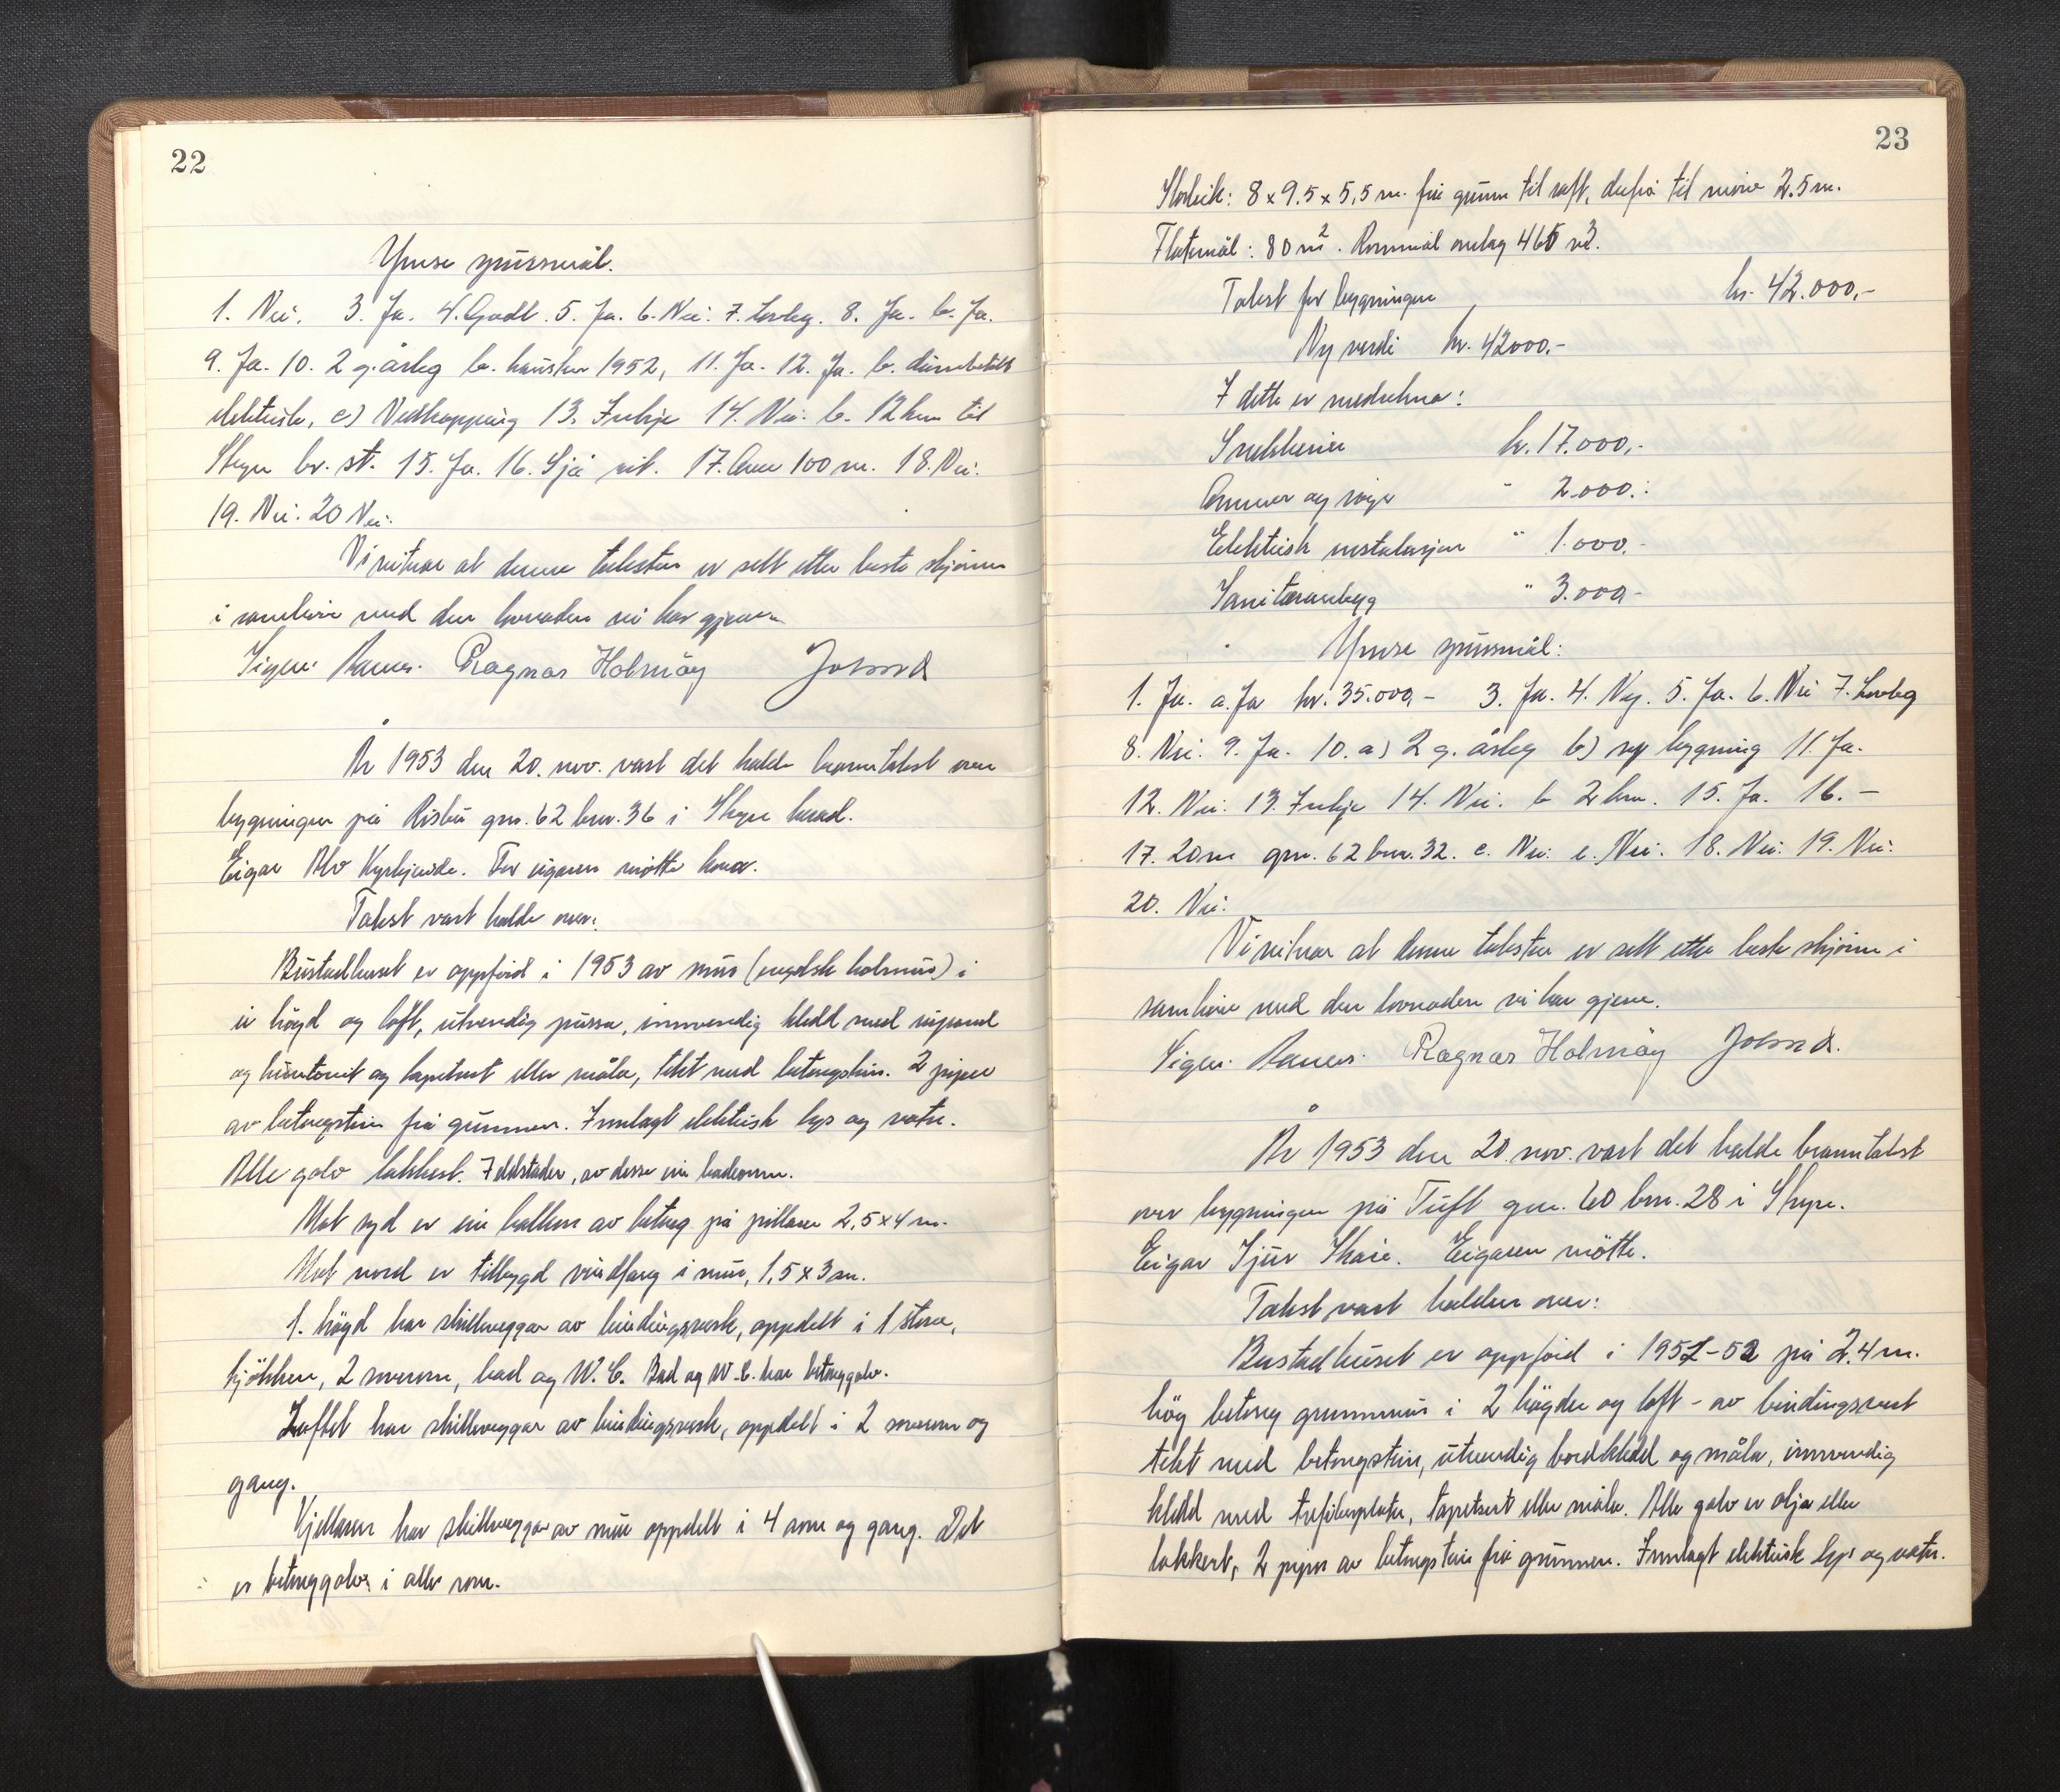 22
Ymse spursmål.
1. Nei. 3. Ja. 4. Godt. 5. Ja. 6. Nei. 7. Lovleg. 8. Ja. b. Ja.
9. Ja. 10. 2 g. årleg b. hausten 1952, 11. Ja. 12. Ja. b.
elektrisk, c) Vedhopping 13. Inkje 14. Nei. b. 12 km til
Stryn br. st. 15. Ja. 16. Sjå rit. 17. Over 100 m. 18. Nei.
19. Nei. 20 Nei.
Vi vitnar at denne taksten er sett etter beste skjønn
i samhøve med den lovnaden vi har gjeve
Sigm. Ragnar Holmøy
År 1953 den 20. nov. vart det halde branntakst over
bygningen på Risbu gnr. 62 bnr. 36 i Stryn herad.
Eigar Alv Kyrkjeeide. For eigaren møtte kona.
Takst vart halde over:
Bustadhuset er oppførd i 1953 av mur (engelsk holmur) i
ei høgd og loft, utvendig pussa, innvendig kledd med
og huntonit og tapetsert eller måla, tekt med betongstein. 2 piper
av betongstein frå grunnen. Innlagt elektrisk lys og vatn.
Alle golv lakkert. 7 eldstader, av desse ein badeomn.
Mot syd er ein balkon av betong på pillarar 2,5 x 4 m.
Mot nord er tilbygd vindfang i mur, 1,5 x 3 m.
1. høgd har skilleveggar av bindingsverk, oppdelt i 1 stove,
kjøkken, 2 soverom, bad og W.C. Bad og W.C. har betonggolv.
Loftet har skilleveggar av bindingsverk, oppdelt i 2 soverom og
gang.
Kjellaren har skilleveggar av mur oppdelt i 4 rom og gang. Det
er betonggolv i alle rom.
23
Storleik: 8 x 9.5 x 5,5 m. frå grunn til raft, derfrå til møne 2.5 m.
Flatemål: 80 m². Rommål omlag 465 m3.
Takst for bygningen kr. 42.000,-
Ny verdi kr. 42000.-
I dette er medrekna:
Snekkeri kr. 17.000,-
Omner og " 2.000.-
Elektrisk instalasjon " 1.000.-
Sanitæranlegg " 3.000-
Ymse spursmål:
1. Ja. a. Ja kr. 35.000,- 3. Ja. 4. Ny. 5. Ja. 6. Nei 7. Lovleg
8. Nei. 9. Ja. 10. a) 2 g. årleg b) ny bygning 11. Ja.
12. Nei. 13. Inkje 14. Nei. b 2 km. 15. Ja. 16. –
17. 20 m gnr. 62 bnr. 32. c. Nei. e. Nei. 18. Nei. 19. Nei.
20. Nei.
Vi vitnar at denne taksten er sett etter beste skjønn i
samhøve med den lovnaden vi har gjeve.
Sigm. Ragnar Holmøy
År 1953 den 20. nov. vart det halde branntakst
over bygningen på Tuft gnr. 60 bnr. 28 i Stryn.
Eigar Sjur Skåre. Eigaren møtte.
Takst vart halden over:
Bustadhuset er oppførd i 1951-52 på 2.4 m.
høg betong grunnmur i 2 høgder og loft – av bindingsverk
tekt med betongstein, utvendig bordkledd og måla, innvendig
kledd med trefiberplater, tapetsert eller måla. Alle golv er olja eller
lakkert, 2 piper av betongstein frå grunnen. Innlagt elektrisk lys og vatn.